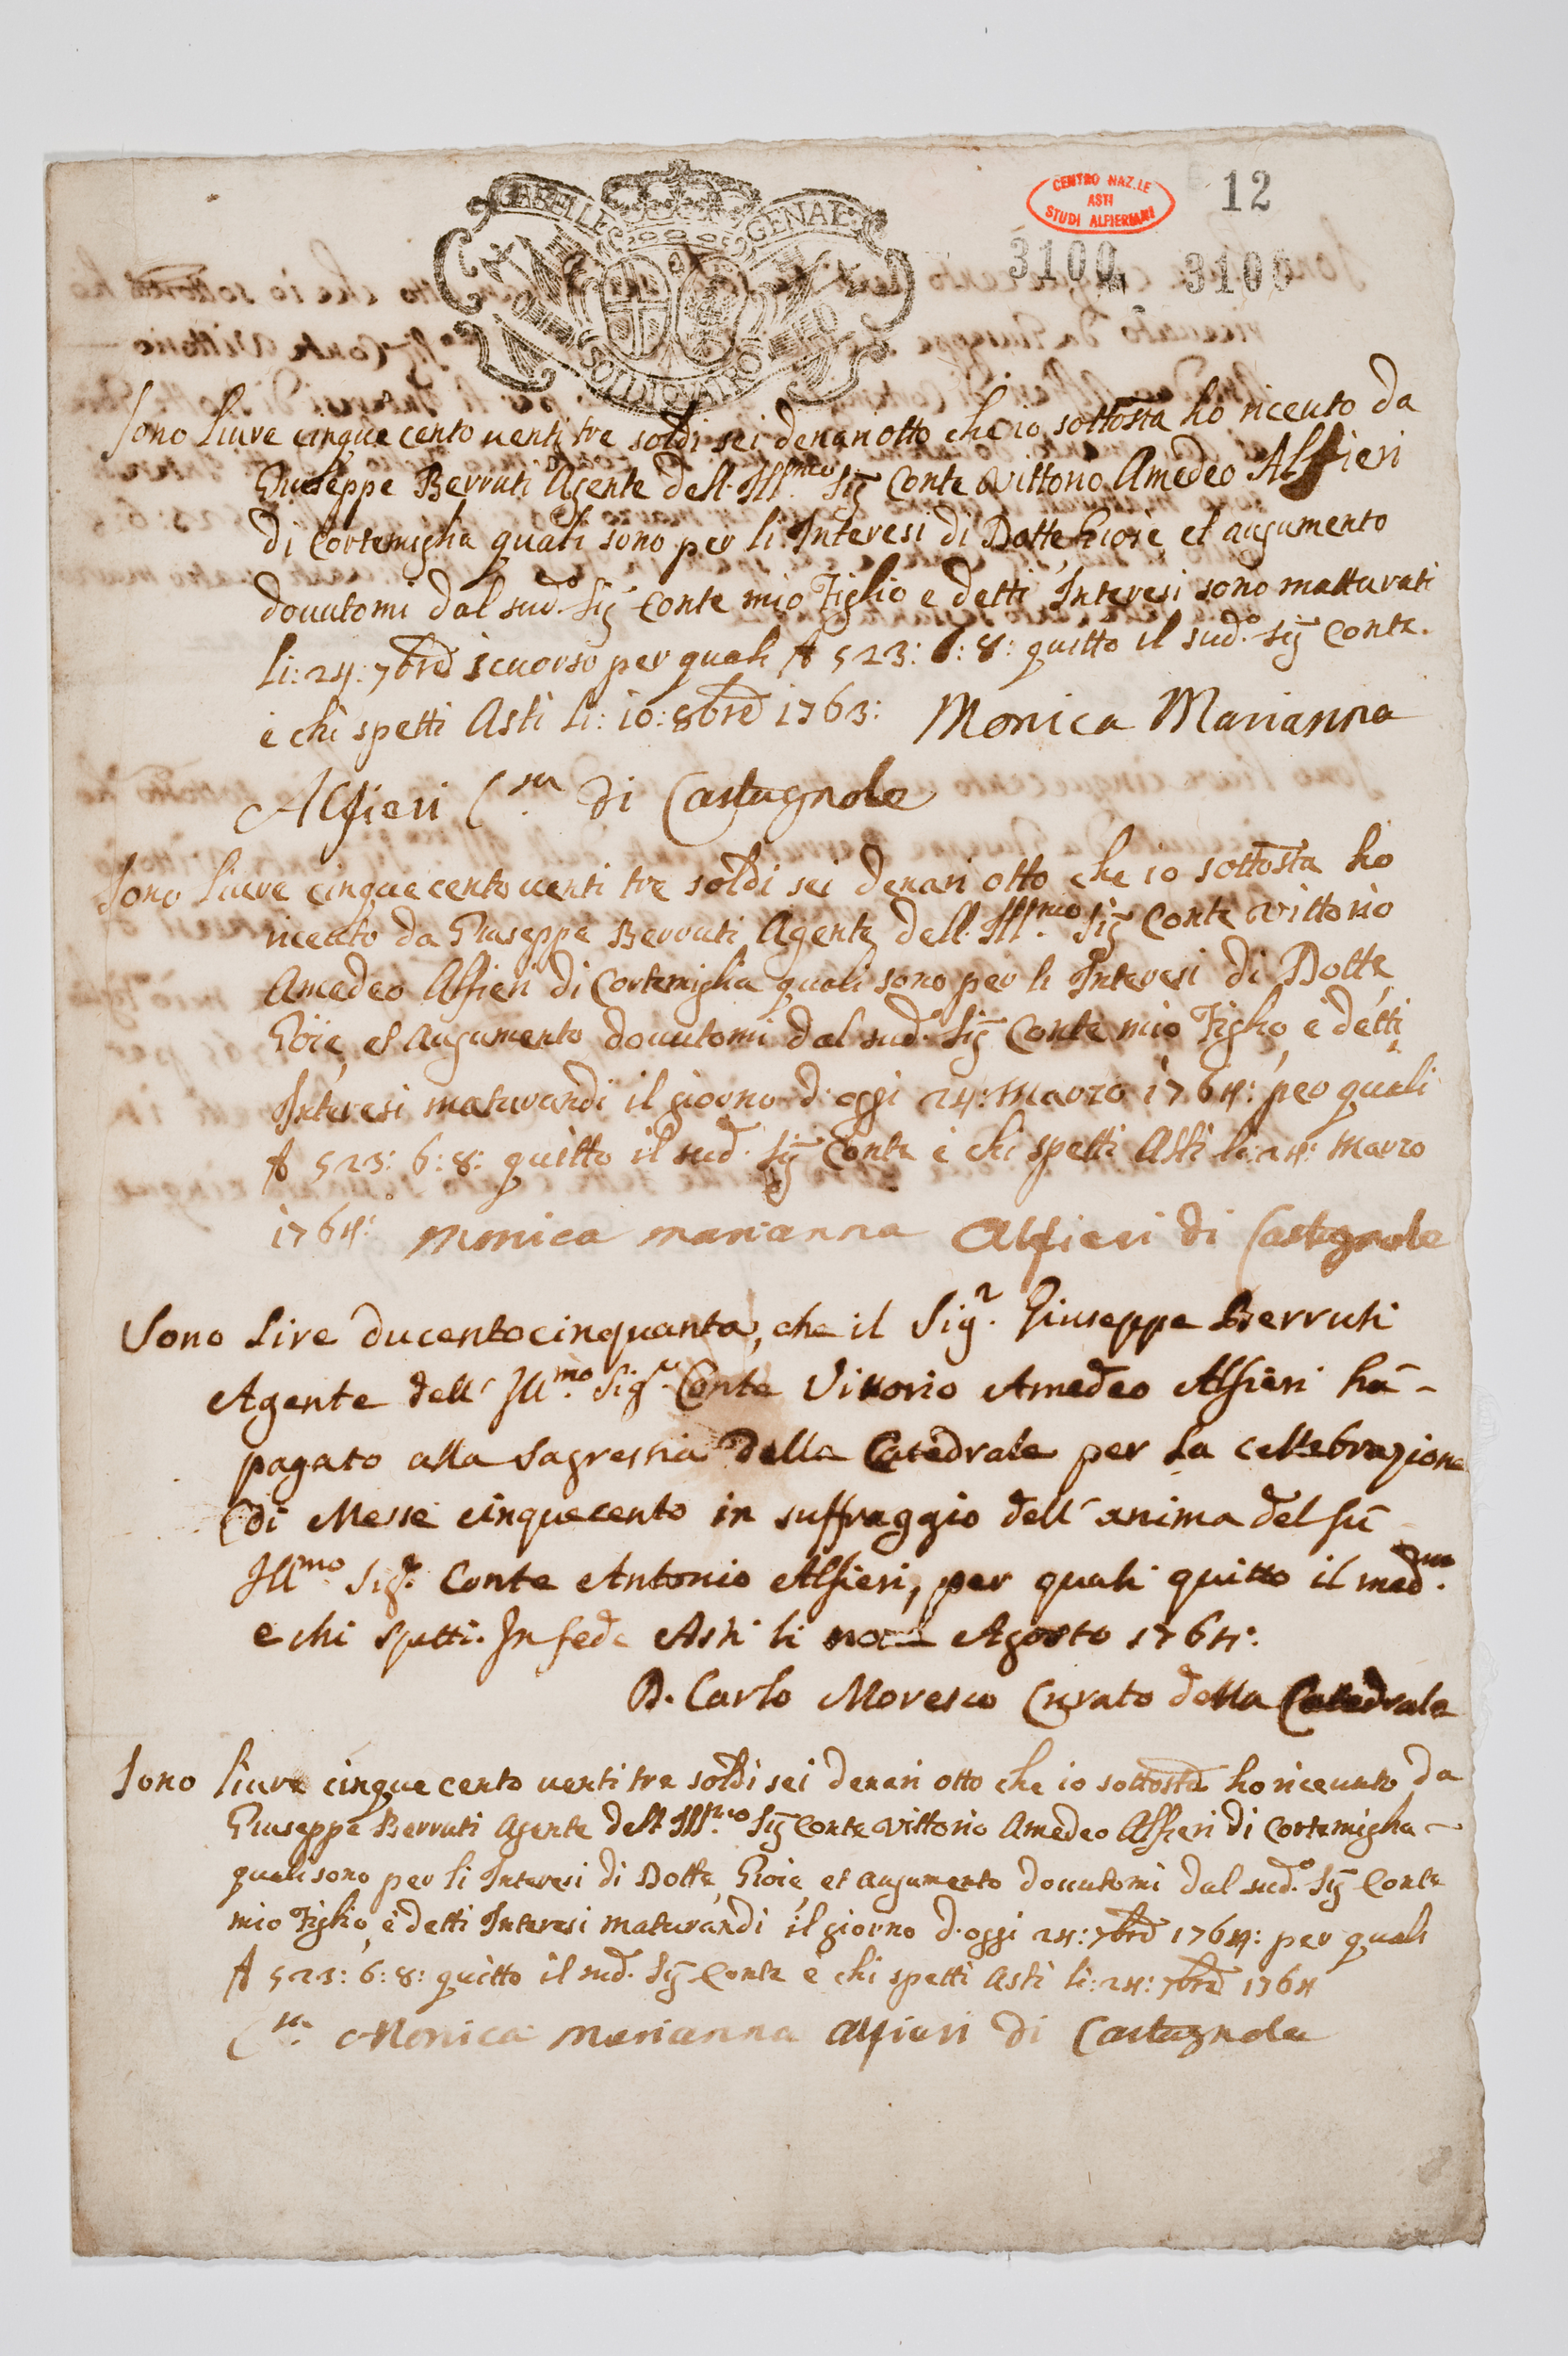 GABELLE GENAL:
SOLDI QUATRO
CENTRO NAZ.LE
ASTI
STUDI ALFIERIANI
12
3100 3100
Sono Livre cinque cento venti tre soldi sei denari otto che io sottosta ho riceuto da
Giuseppe Berruti Agente dell. Ill.mo Sig Conte Vittorio Amedeo Alfieri
di Cortemiglia quali sono per li Interesi di Dotte, Gioie, et augumento
douutomi dal sud.o Sig Conte mio Figlio e detti Interesi sono matturati
li: 24: 7bre scuorso per quali 523: 6: 8: quitto il sud.o Sig Conte.
e chi spetti Asti li: 10: 8bre 1763: Monica Marianna
Alfieri C.sa di Castagnole
Sono Livre cinque cento venti tre soldi sei denari otto che io sottosta ho
riceuto da Giuseppe Berruti Agente dell. Ill.mo Sig Conte Vittorio
Amedeo Alfieri di Cortemiglia quali sono per li Interesi di Dotte,
Gioie, et augumento douutomi dal sud.o Sig Conte mio Figlio, e detti
Interesi maturandi il giorno d'oggi 24: Marzo 1764: per quali
523: 6: 8: quitto il sud. Sig Conte e chi spetti Asti li: 24: Marzo
1764: Monica Marianna Alfieri di Castagnole
Sono Lire ducentocinquanta, che il Sig.r Giuseppe Berruti
Agente dell' Ill.mo Sig.r Conte Vittorio Amedeo Alfieri hà -
pagato alla Sagrestia della Catedrale per la cellebrazione
di Messe cinquecento in suffraggio dell' anima del fù
Ill.mo Sig.r Conte Antonio Alfieri, per quali quitto il med.mo
e chi spetti. In fede Asti li Agosto 1764:
D. Carlo Moresco Curato della Catedrale
Sono livre cinque cento venti tre soldi sei denari otto che io sottosta ho riceuuto da
Giuseppe Berruti Agente dell Ill.mo Sig Conte Vittorio Amedeo Alfieri di Cortemiglia -
quali sono per li Interesi di Dotte, Gioie, et augumento douutomi dal sud.o Sig Conte
mio Figlio, e detti Interesi maturandi il giorno d'oggi 24: 7bre 1764: per quali
523: 6: 8: quitto il sud. Sig Conte e chi spetti Asti li: 24: 7bre 1764
C.sa Monica Marianna Alfieri di Castagnole